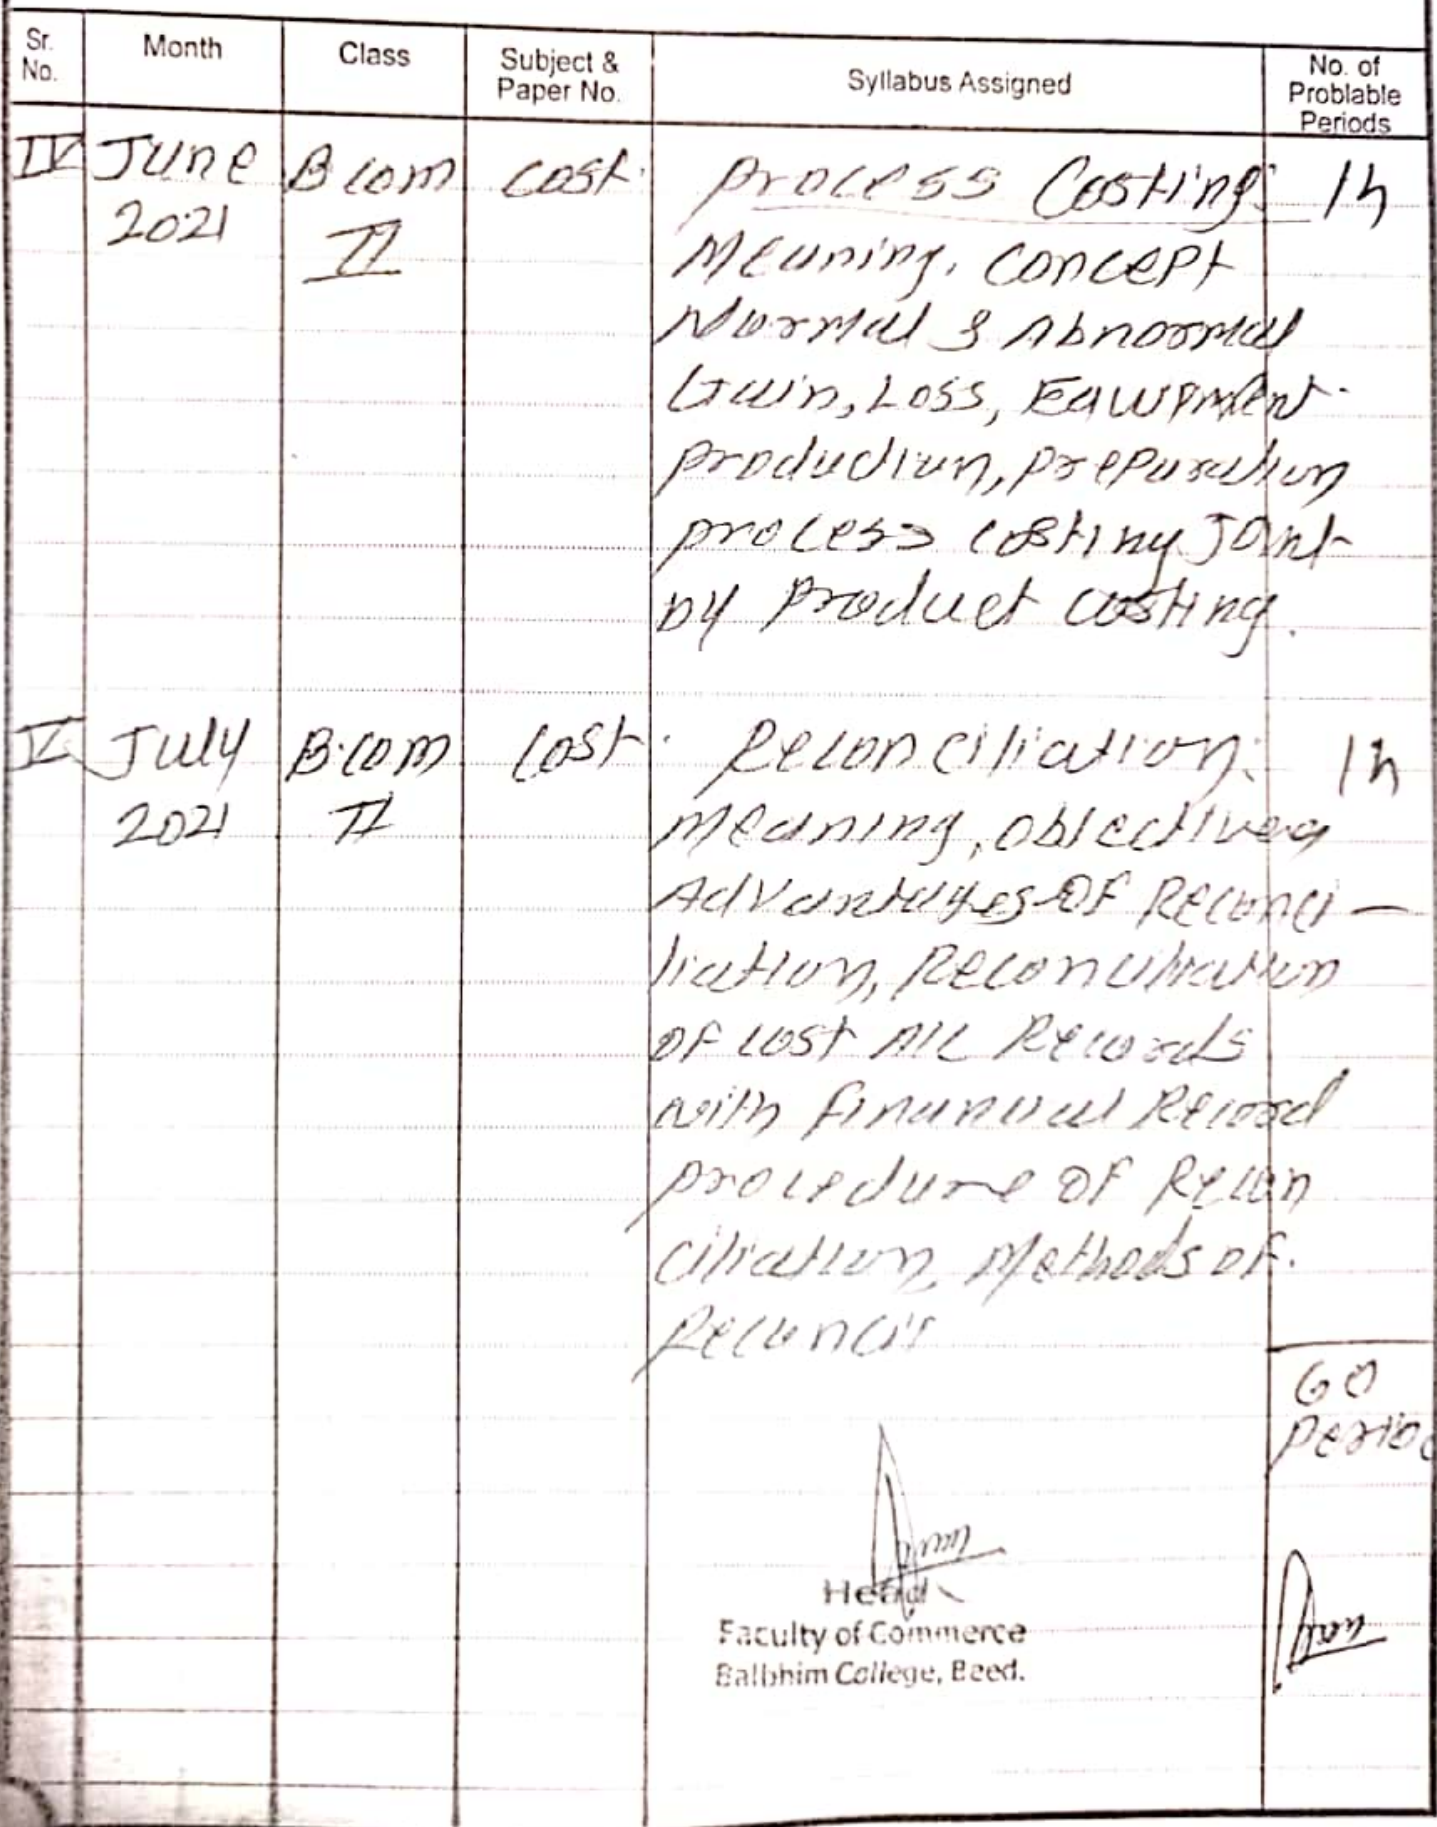 Sr. No. Month Class Subject & Paper No. Syllabus Assigned No. of Problable Periods
IV June 2021 B com II cost. Process Costing:
Meaning, Concept
Normal & Abnormal
Gain, Loss,
production, preparation
process costing Joint
by product costing.
V July 2021 B.com II cost. Reconciliation:
Meaning, objectives
Advantages OF Reconci-
liation, Reconciliation
OF cost Records
with financial Record
procedure OF Recon
ciliation, Methods OF.
Reconci
60
Perio
Head
Faculty of Commerce
Balbhim College, Beed.